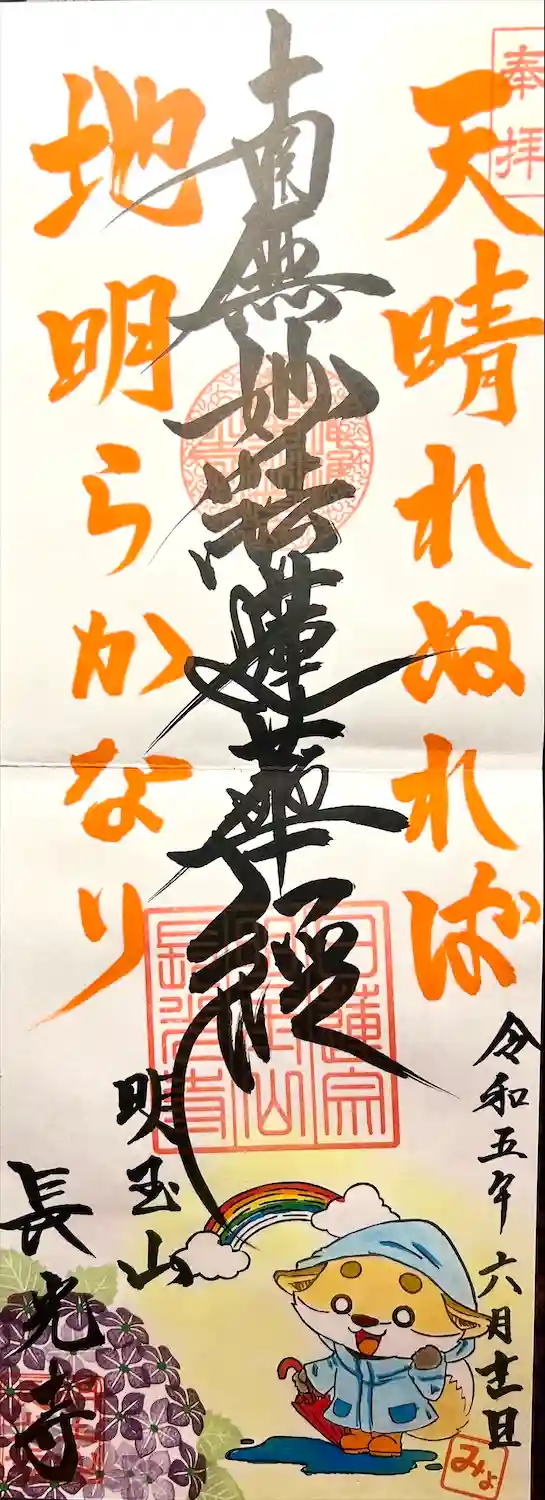 奉拝
天晴れぬれば
南無妙法蓮華経
地明らかなり
令和五年 六月十一日
明玉山
長光寺
日蓮宗
明玉山
長光寺
みょ